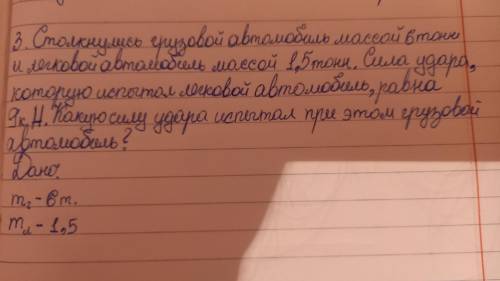 3. Столкнулись грузовой автомобиль массой 6 тонн
и легковой автомобиль массой 1,5 тонн. Сила удара,
которую испытал легковой автомобиль, равна
9к.Н. Какую силу удара испытал при этом грузовой
автомобиль?
Дано:
mг - 6 т.
mл - 1,5